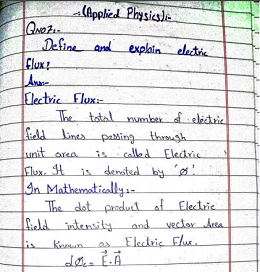 -:(Applied Physics):-
QNO7:-
Define and explain electric
flux?
Ans:-
Electric Flux:-
The total number of electric
field lines passing through
unit area is called Electric
Flux. It is denoted by 'Ø'
In Mathematically:-
The dot product of Electric
field intensity and vector Area
is known as Electric Flux.
dØₑ = E⃗.A⃗